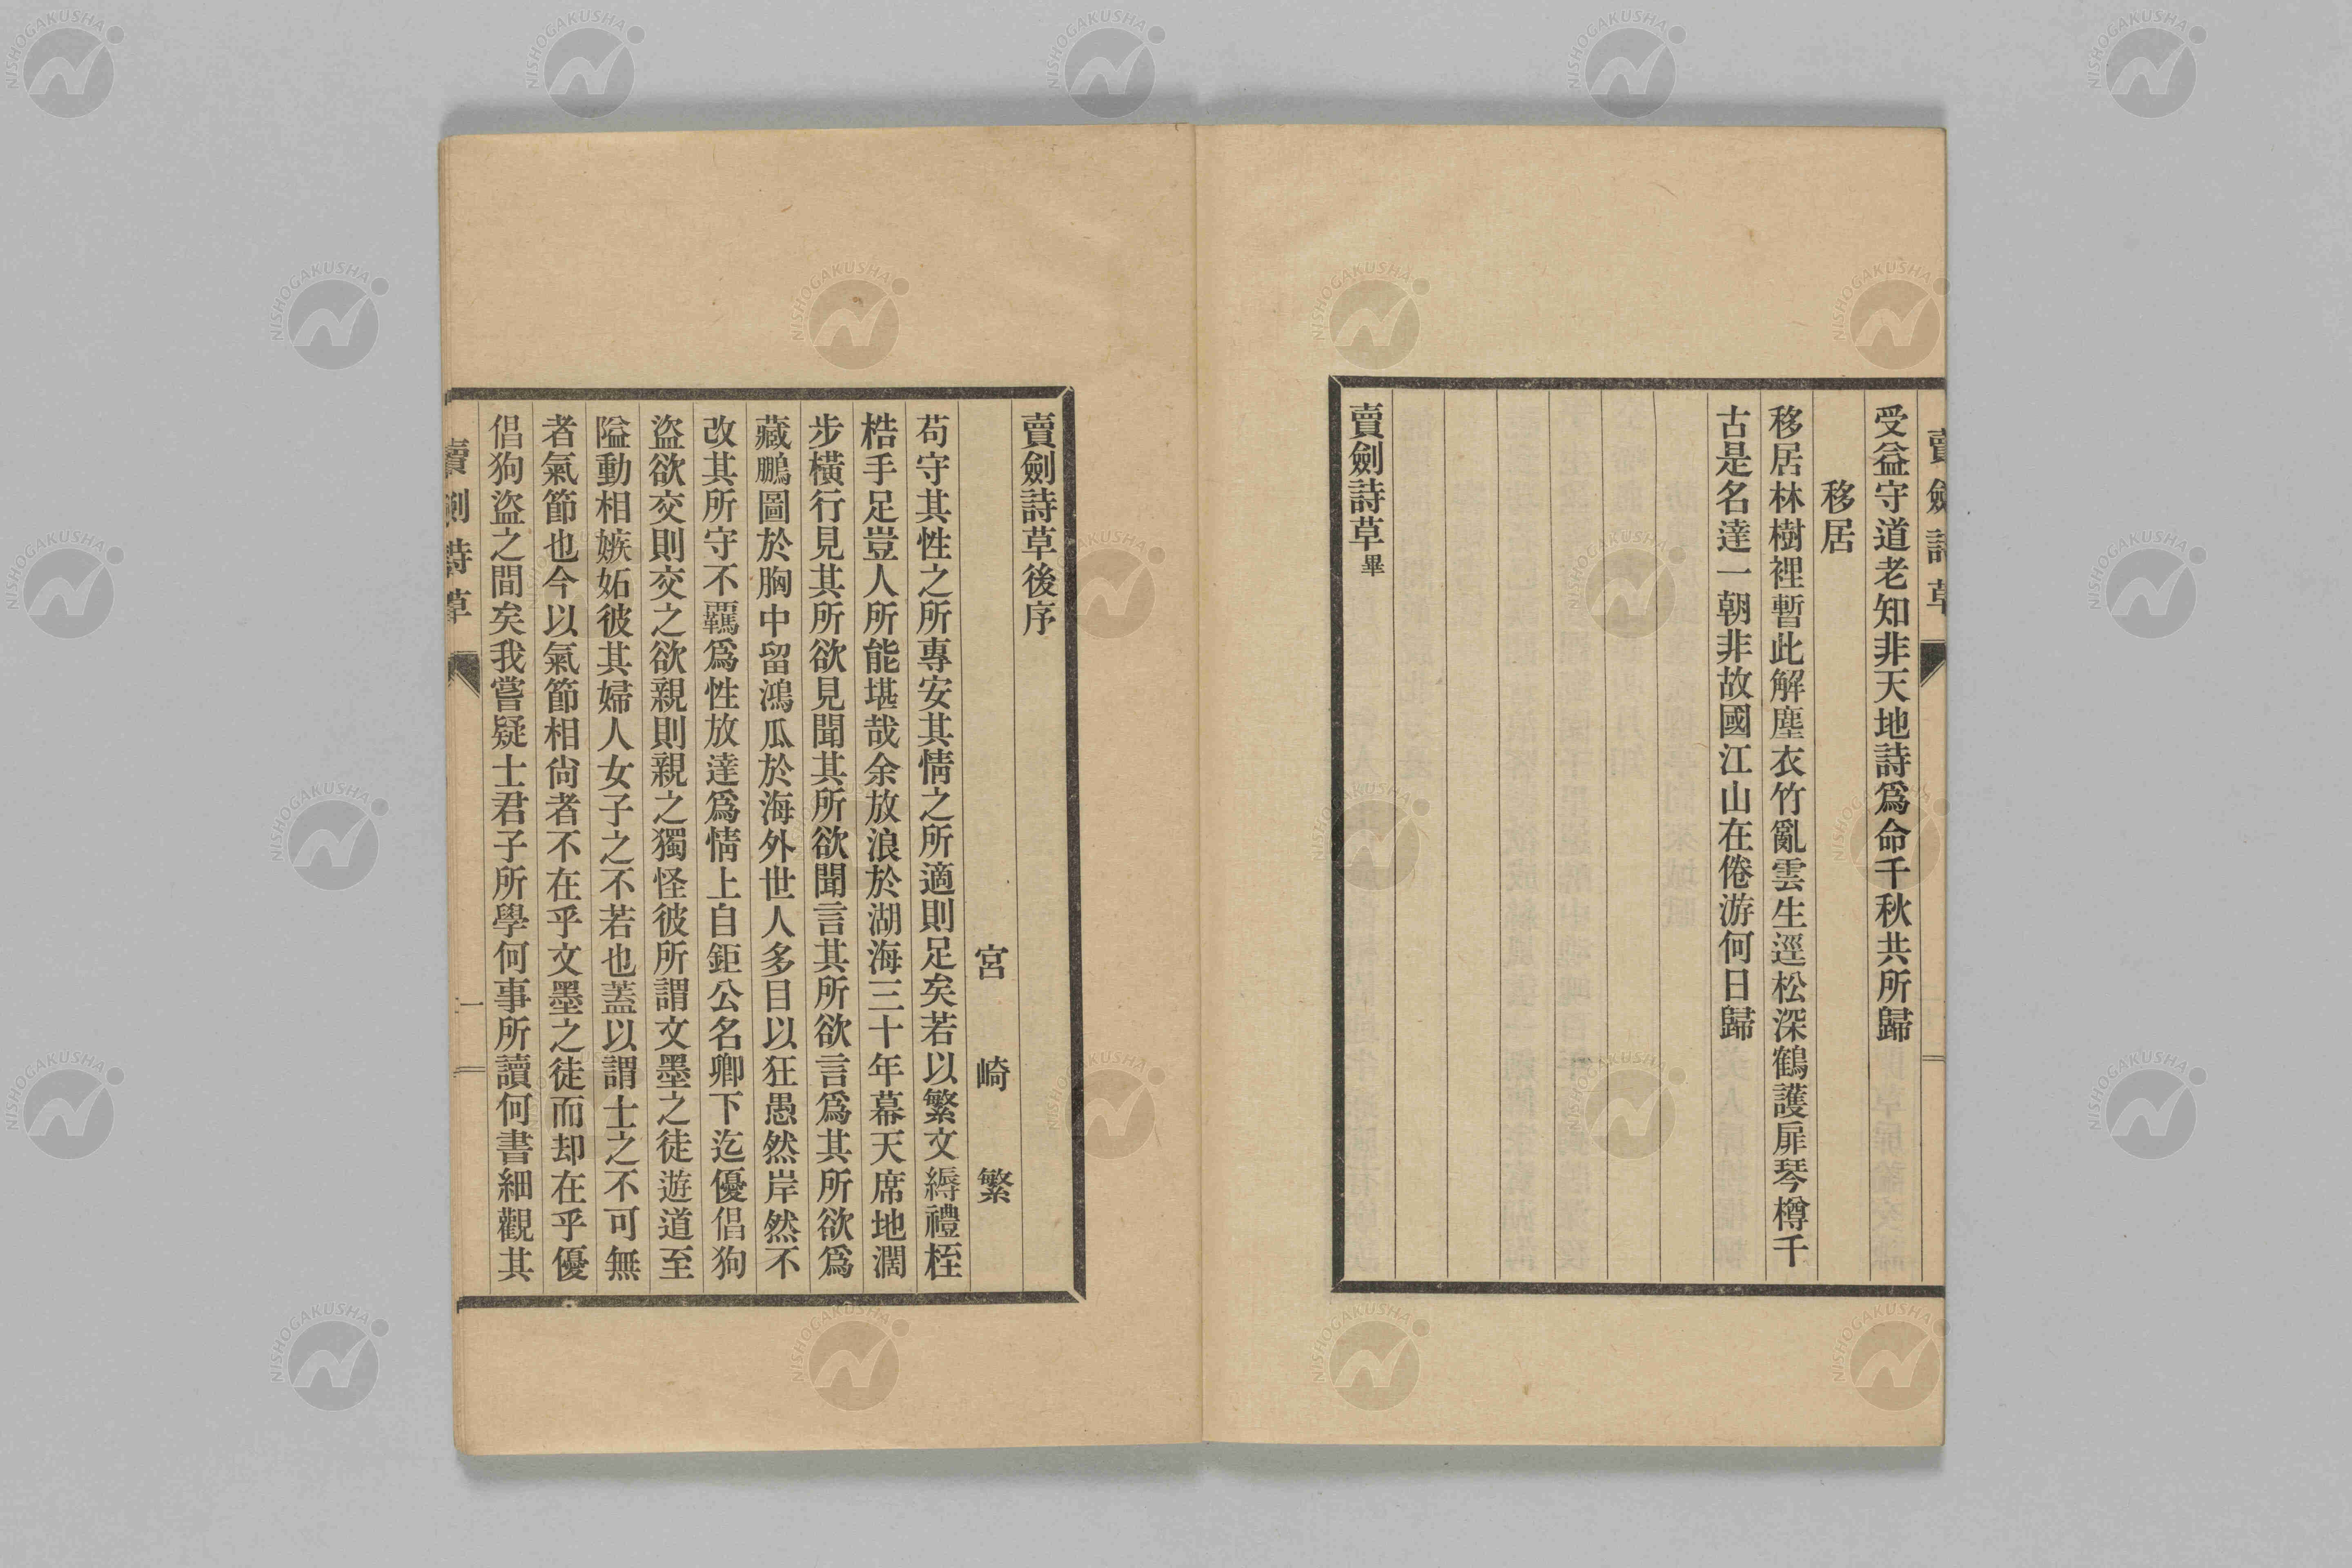 受益守道老知非天地詩爲命千秋共所歸
移居
移居林樹裡暫此解塵衣竹亂雲生逕松深鶴護扉琴樽千
古是名達一朝非故國江山在倦游何日歸
賣劍詩草畢
賣劍詩草
賣劍詩草後序
宮崎繁
苟守其性之所專安其情之所適則足矣若以繁文縟禮桎
梏手足豈人所能堪哉余放浪於湖海三十年幕天席地濶
步橫行見其所欲見聞其所欲聞言其所欲言爲其所欲爲
藏鵬圖於胸中留鴻瓜於海外世人多目以狂愚然岸然不
改其所守不羈爲性放達爲情上自鉅公名卿下迄優倡狗
盜欲交則交之欲親則親之獨怪彼所謂文墨之徒遊道至
隘動相嫉妬彼其婦人女子之不若也蓋以謂士之不可無
者氣節也今以氣節相尙者不在乎文墨之徒而却在乎優
倡狗盜之間矣我嘗疑士君子所學何事所讀何書細觀其
賣劍詩草
一
NISHOGAKUSHA